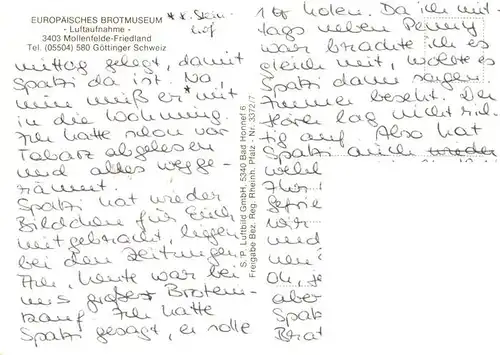 EUROPÄISCHES BROTMUSEUM
- Luftaufnahme -
3403 Mollenfelde-Friedland
Tel. (05504) 580 Göttinger Schweiz
mittag gelegt, damit
Spatzi da ist. Na
nun muß er * mit
in die Wohnung.
Ich hatte schon vor
Tabarz abgelesen
und alles wegge-
räumt.
Spatzi hat wieder
Bildchen für Euch
mitgebracht, liegen
bei den Zeitungen.
Ich, heute war bei
uns großer Brotein-
kauf. Ich hatte
Spatzi gesagt, er solle
S. P. Luftbild GmbH, 5340 Bad Honnef 6
Freigabe Bez. Reg. Rheinh. Pfalz - Nr. 3372/7
holen. Da ich mit-
tags neben Penny
war brachte ich es
gleich mit, wollte es
Spatzi dann sagen
Zimmer besetzt. Der
Hörer lag nicht rich-
tig auf. Also hat
Spatzi auch wieder
welch
gefrie
wir
und
Oh, je
aber
Spatz
Brat